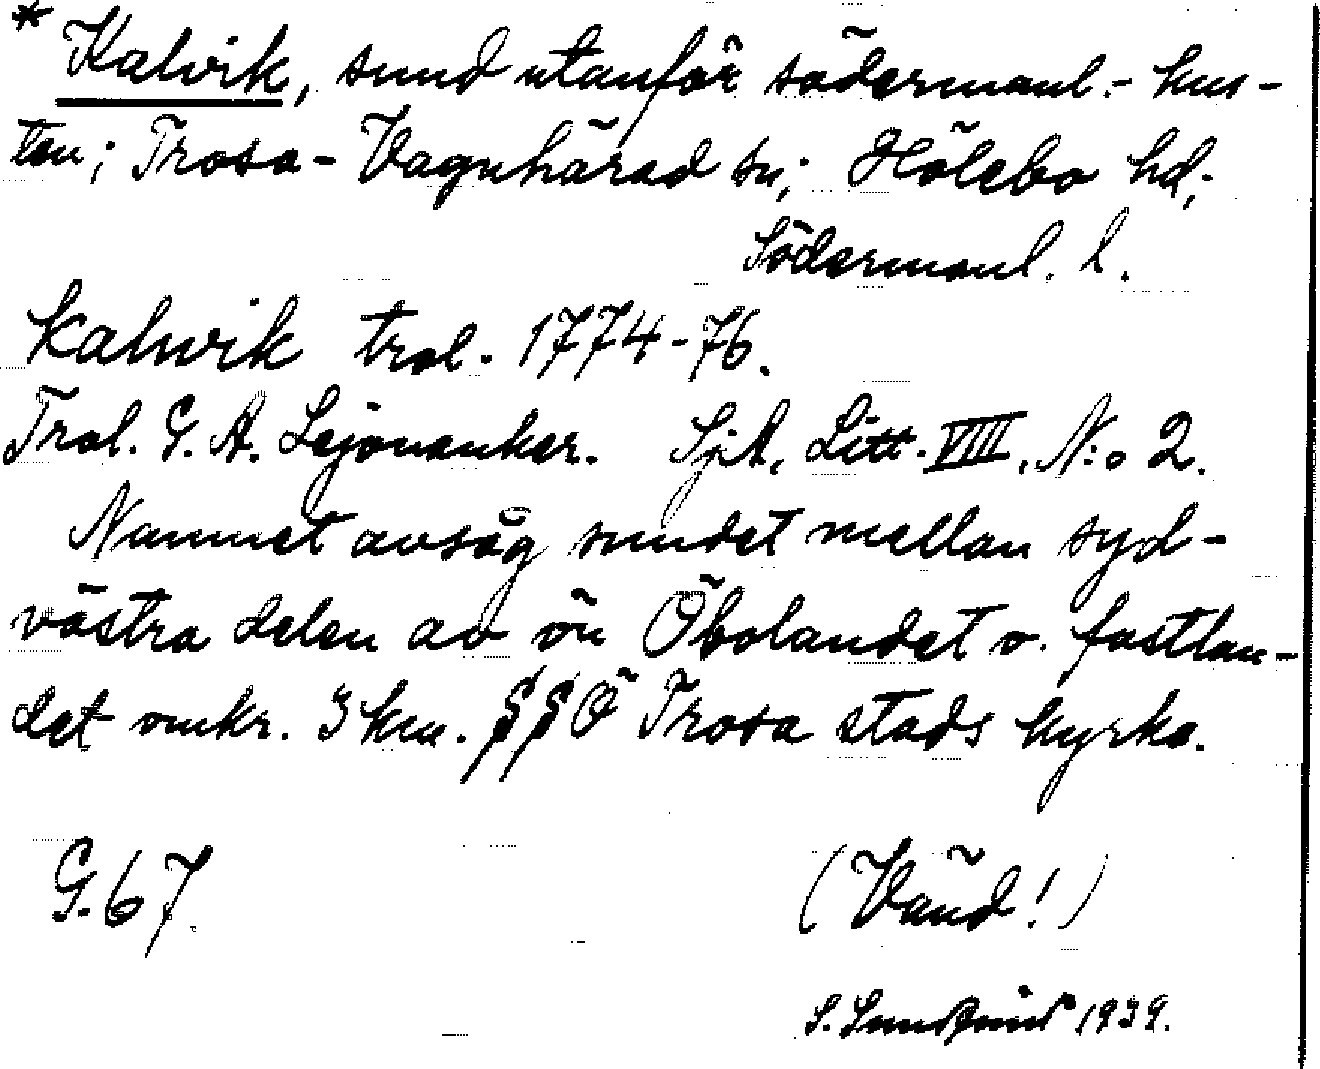 * Kalvik, sund utanför södermanl.-kus-
ten; Trosa-Vagnhärad sn; Hölebo hd;
Södermanl. l.
Kalwik trol. 1774-76.
Trol. G. A. Lejonanker. SjA, Litt. VIII, N:o 2.
Namnet avsåg sundet mellan syd-
västra delen av ön Öbolandet o. fastlan-
det omkr. 3 km. SSÖ Trosa stads kyrka.
G. 67.
(Vänd!)
S. 1939.